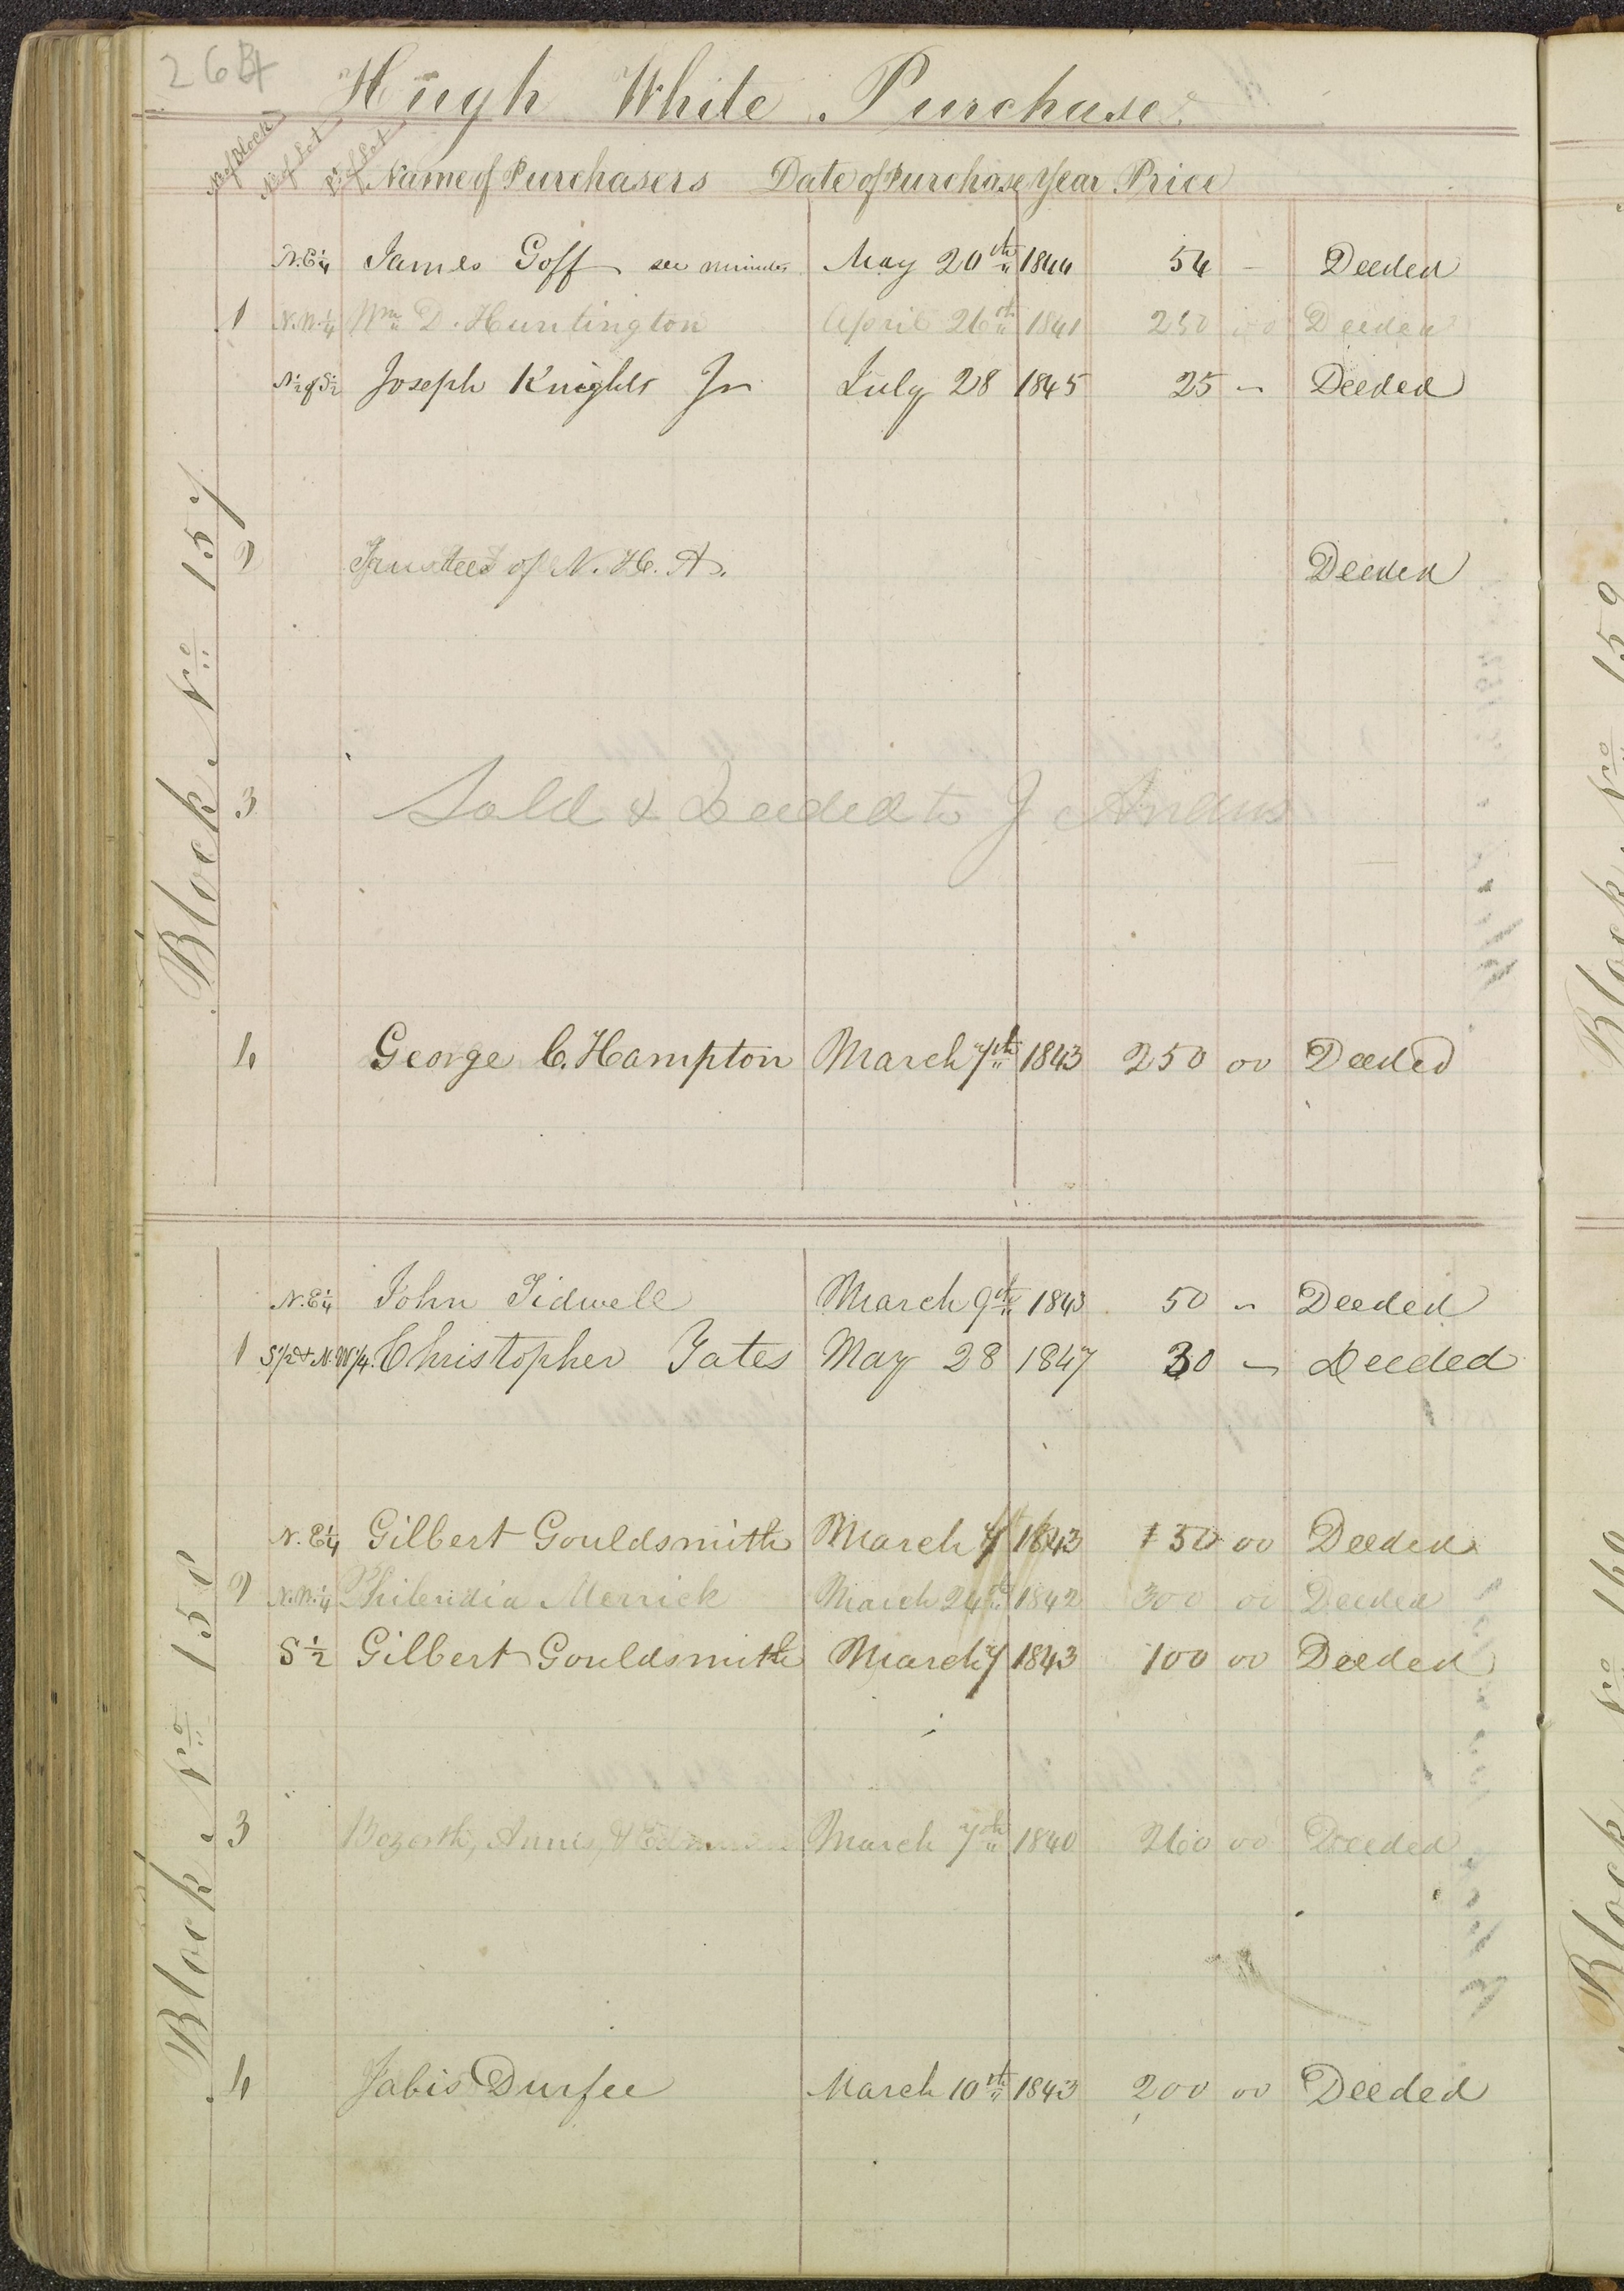 264
Hugh White Purchase
No of Block No of Lot Pt. of Lot Name of Purchasers Date of Purchase Year Price
Block No 157
N.E 1/4 James Goff see minutes May 20th 1844 54 - Deeded
1 N.W. 1/4 Wm D. Huntington April 26th 1841 250 00 Deeded
N 1/2 of S 1/2 Joseph Knights Jr July 28 1845 25 - Deeded
2 Trustees of N. H. A. Deeded
3 Sold & Deeded to J
4 George C. Hampton March 7th 1843 250 00 Deeded
Block No 158
N.E 1/4 John Tidwell March 9th 1843 50 - Deeded
1 S 1/2 & N.W 1/4. Christopher Yates May 28 1847 30 - Deeded
N. E 1/4 Gilbert Gouldsmith March 7 1843 150 00 Deeded
2 N.W. 1/4 Philendia Merrick March 24th 1842 300 00 Deeded
S 1/2 Gilbert Gouldsmith March 7 1843 100 00 Deeded
3 Bozorth, Annis, & March 7th 1840 260 00 Deeded
4 Jabis Durfee March 10th 1843 200 00 Deeded
Block No 159
Block No 160